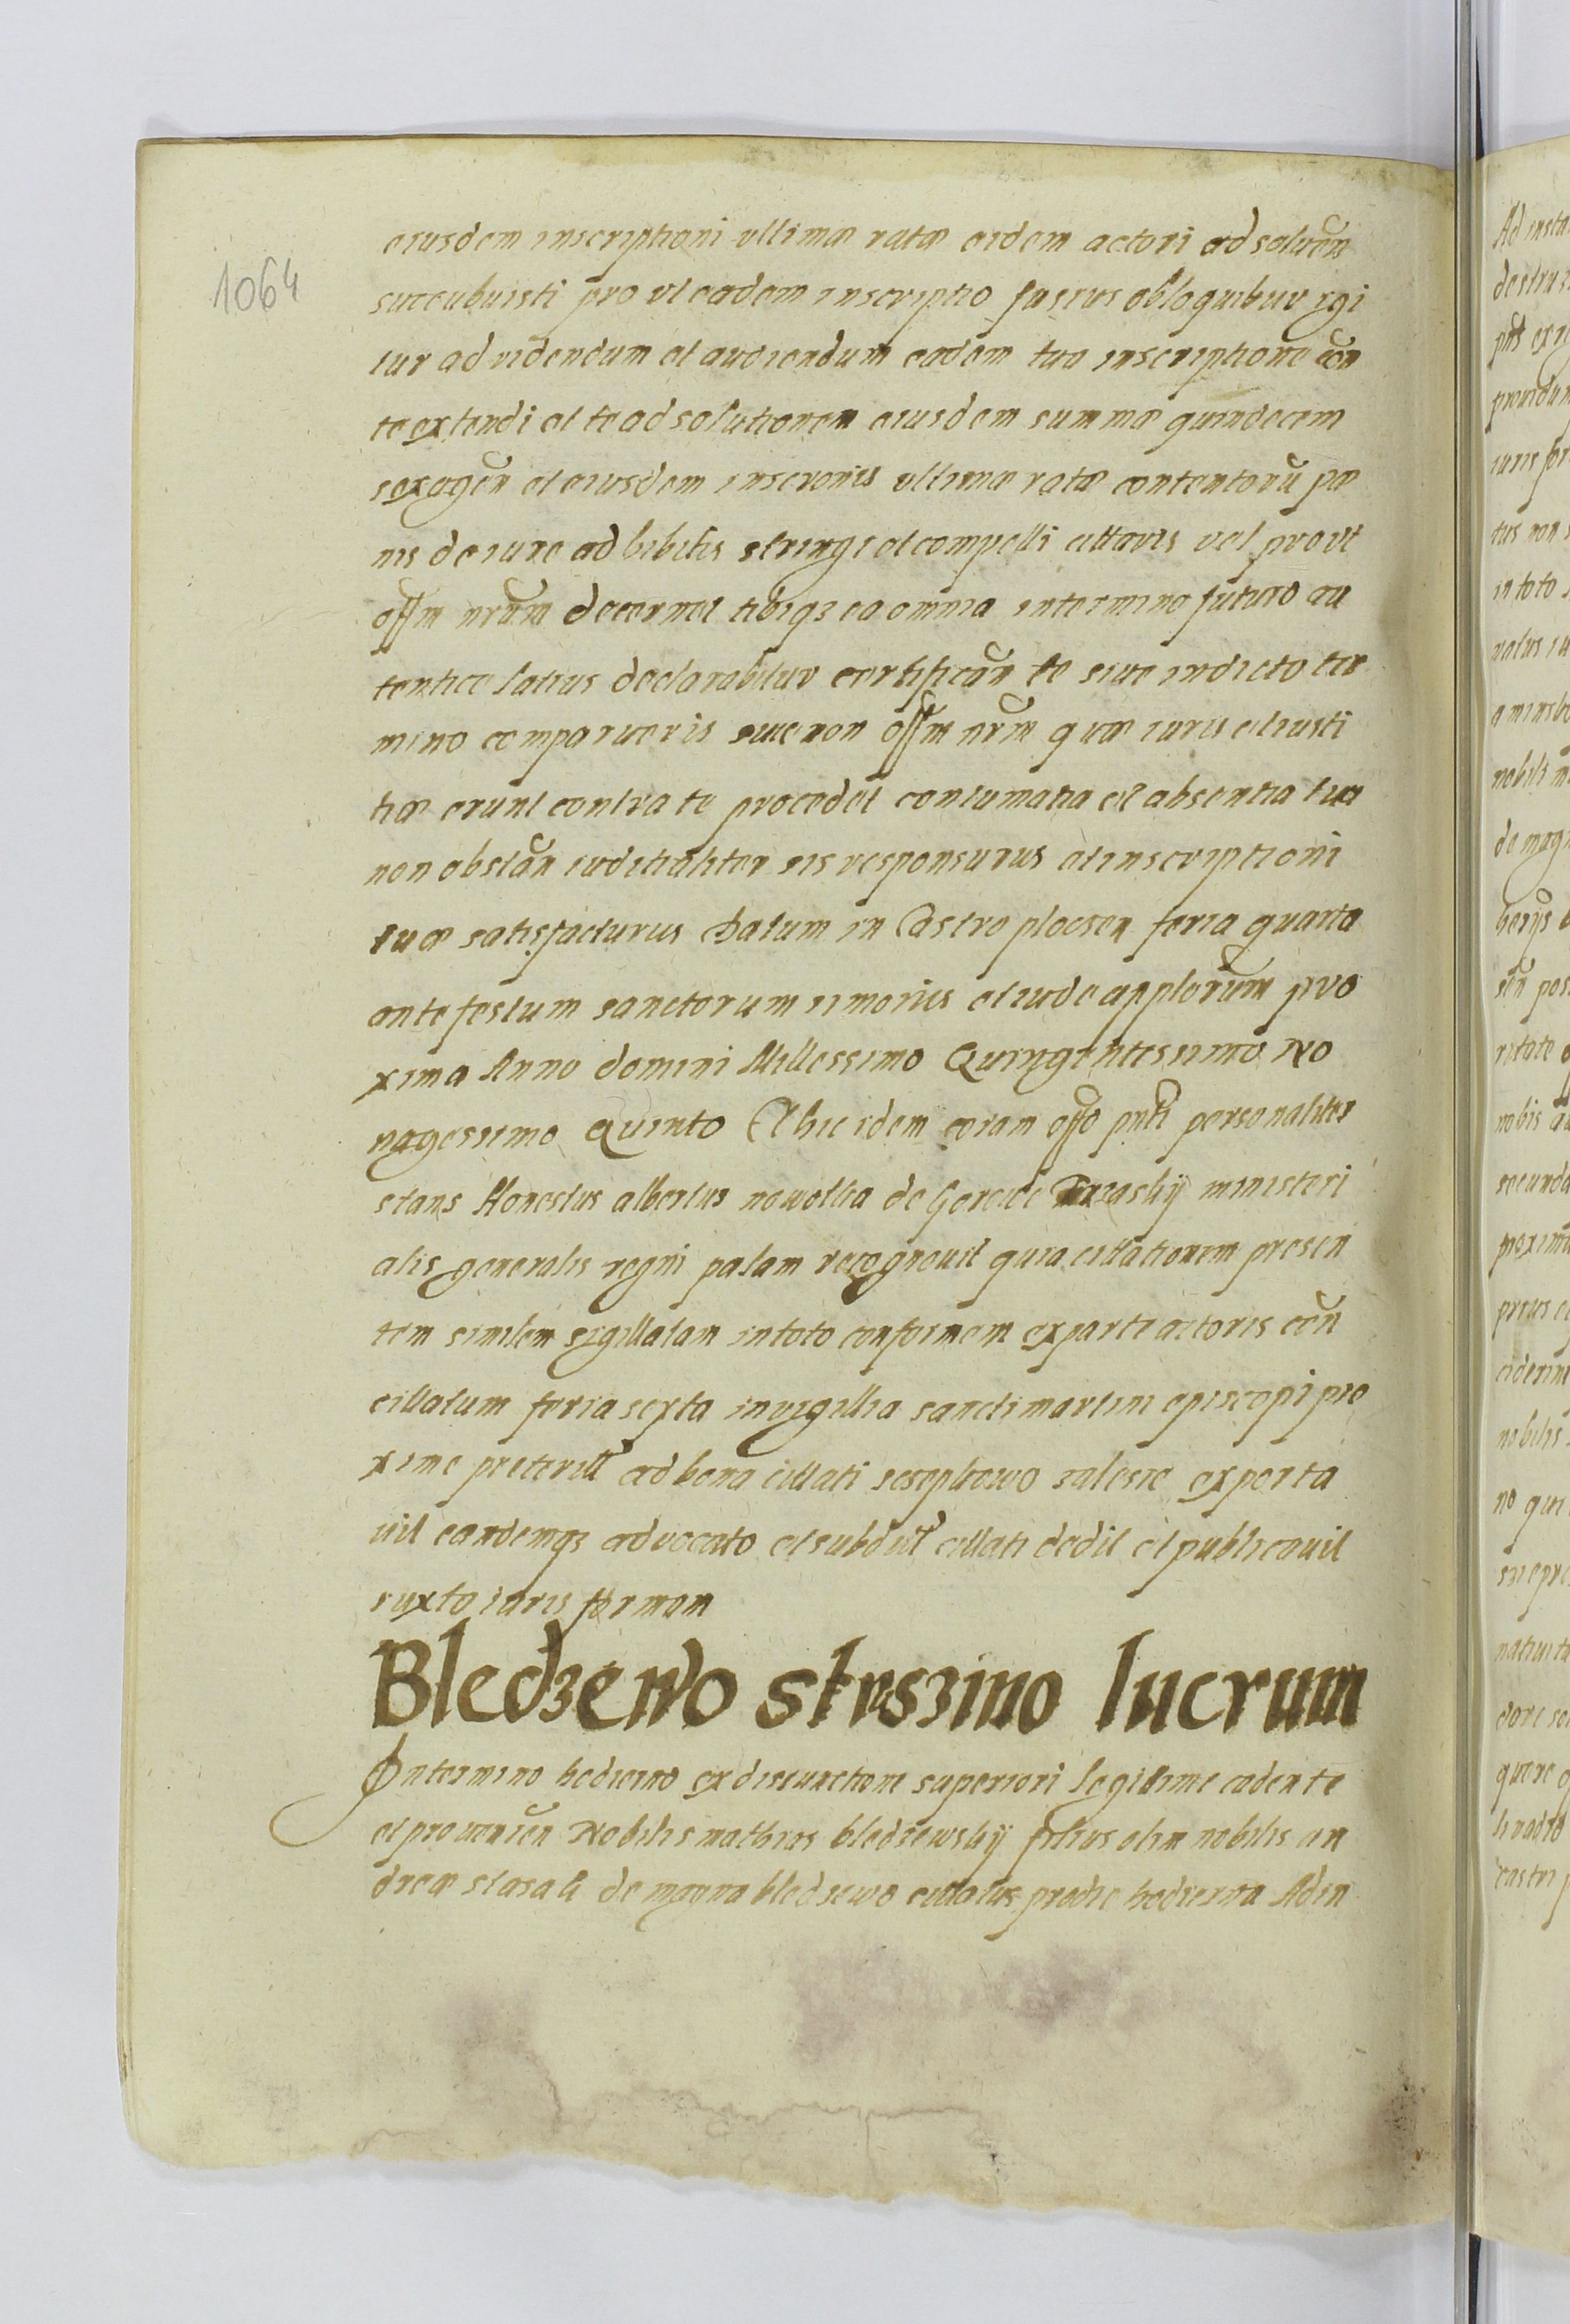 1064
eiusdem inscriptioni ultimæ ratæ eidem actori ad soluen̄
succubuisti pro ut eadem inscriptio fusius obloquitur igi
tur ad videndum et audiendum eadem tua inscriptione con̄
te extendi et te ad solutionem eiusdem summæ quindecem
sexagen̄ et eiusdem inscronis ultimæ ratæ contentorū pæ
nis de iure adhibitis stringi et compelli cittaris vel prout
offm nrūm decernet tibiqz ea omnia in termino futuro au
tentice latius declarabitur certifican̄ te sive in dicto ter
mino comparueris sive non offm nrm quæ iuris et iusti
tiæ erunt contra te procedet contumatia et absentia tua
non obstan̄ iuditialiter sis responsurus et inscriptioni
tuæ satisfacturus Datum in Castro plocsen feria quarta
ante festum sanctorum simonis et iude applorum pro
xima Anno domini Millessimo Quingentessimo No
nagessimo Quinto Et hic idem coram offo pnti personaliter
stans Honestus albertus nowotka de ministeri
alis generalis regni palam recognouit quia cittationem presen
tem similem sigillatam in toto conformem ex parte actoris con̄
cittatum feria sexta in vigillia sancti martini episcopi pro
xime preterit ad bona cittati zalesie exporta
uit eandemqz advocato et subdit cittati dedit et publicauit
iuxta iuris formam
Bledzewo struszino lucrum
In termino hodierno ex disiunctione superiori legitime cadente
et prouenien̄ Nobilis mathias bledzewskij filius olim nobilis an
dreæ stasak de magna bledzewo cittatus pro die hodierna Ad in